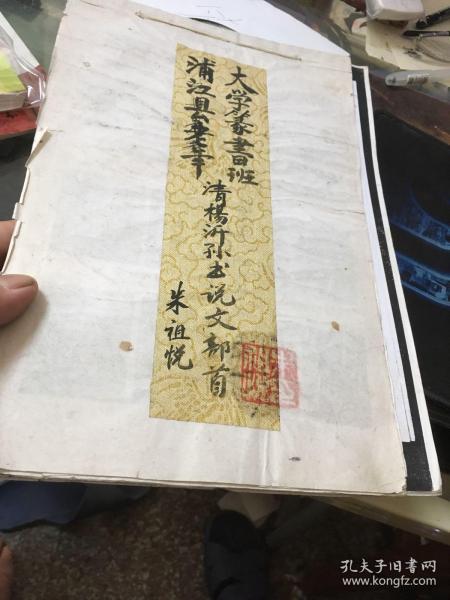 大学篆書班
浦江县
清楊沂孙书说文部首
朱祖悦
孔夫子旧书网
www.kongfz.com